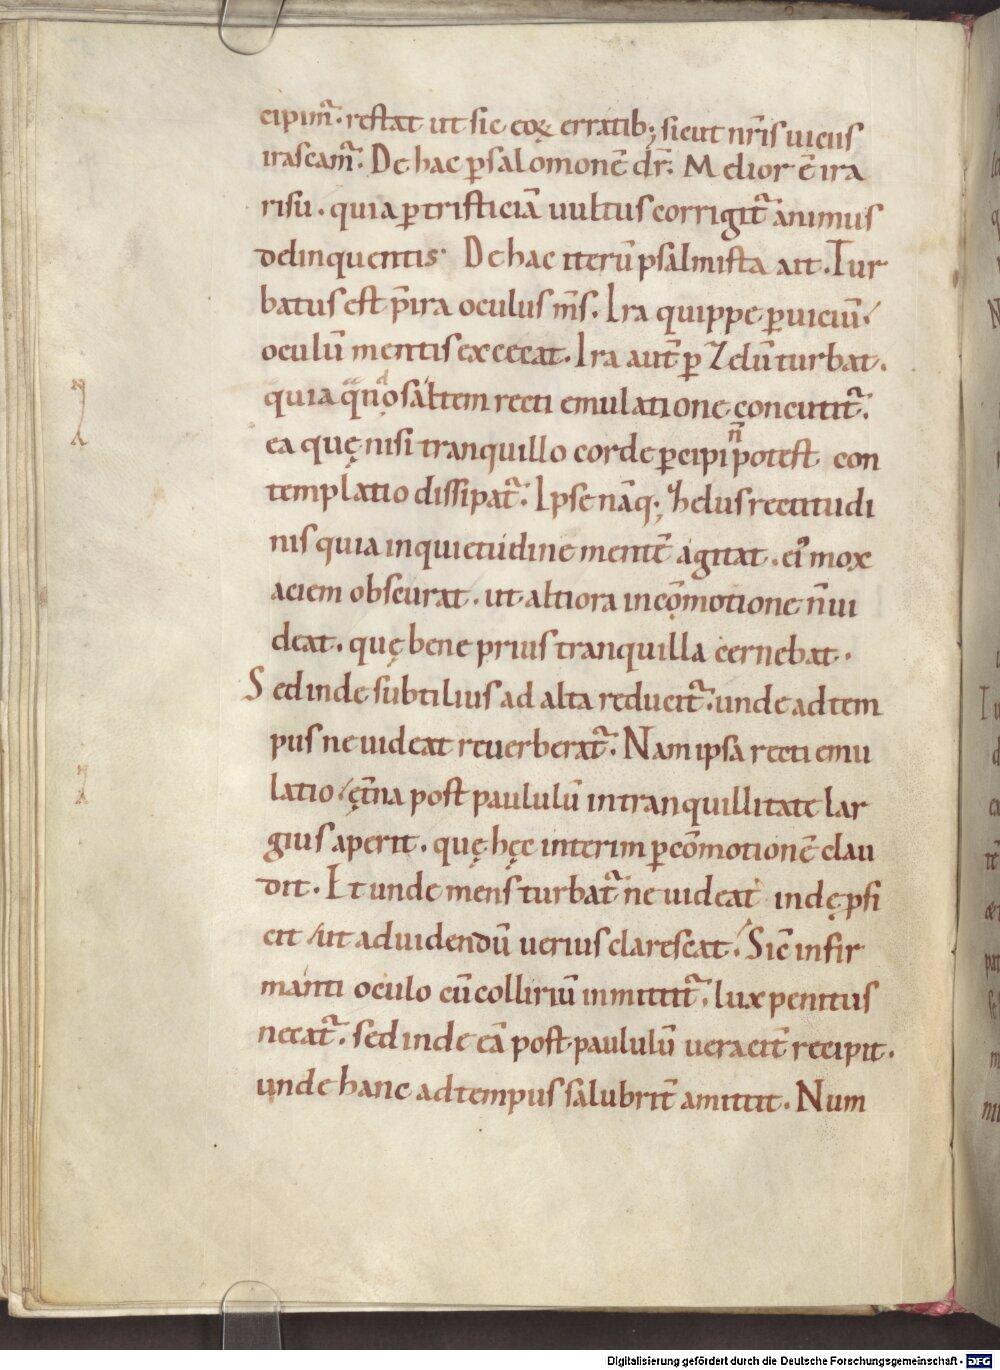 cipim̄. restat ut sic eoꝝ erratib; sicut nr̄is uiciis
irascam̄. De hac ꝑ salomonē dr̄. Melior ē ira
risu. quia ꝑ tristiciā uultus corrigit᷑ animus
delinquentis. De hac iterū psalmista ait. Tur
batus est p̄ ira oculus m̄s. Ira quippe ꝑ uiciū
oculū mentis excecat. Ira aut̄ ꝑ zelū turbat.
quia saltem recti emulatione concutit᷑.
ea quę nisi tranquillo corde ꝑcipi n̄ potest con
templatio dissipat᷑. Ipse nāq; zelus rectitudi
nis quia inquietudine mentē agitat. ei᷒ mox
aciem obscurat. ut altiora in cōmotione n̄ ui
deat. quę bene prius tranquilla cernebat.
Sed inde subtilius ad alta reducit᷑. unde ad tem
pus ne uideat reuerberat᷑. Nam ipsa recti emu
latio ęt̄na post paululū in tranquillitate lar
gius aperit. quę hęc interim ꝑ cōmotionē clau
dit. Et unde mens turbat᷑ ne uideat indę ꝓfi
cit ut ad uidendū uerius clarescat. Sic̄ infir
manti oculo cū colliriū inmittit᷑. lux penitus
necat᷑. sed inde eā post paululū ueracit̄ recipit.
unde hanc ad tempus salubrit̄ amittit. Num
Digitalisierung gefördert durch die Deutsche Forschungsgemeinschaft - DFG